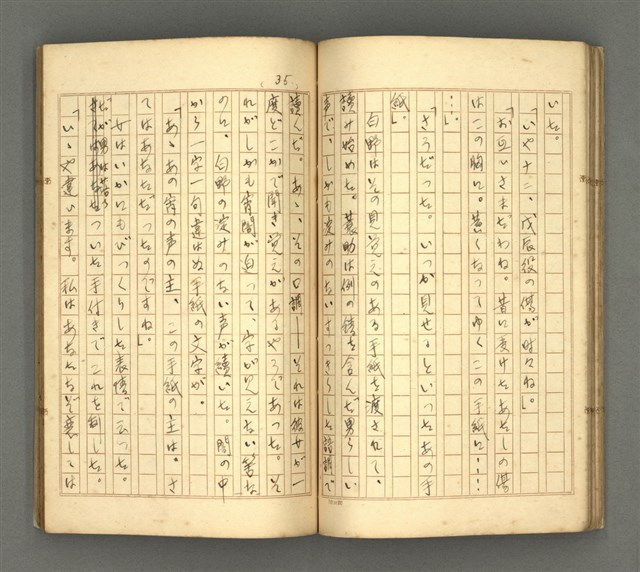 いた。
「いや十二、戊辰役の傷が時々ね」。
「お互ひさまだわね。昔に受けたあたしの傷
はこの胸に。悪くなつてゆくこの手紙に……
…」。
「さうだつた。いつか見せるといつたあの手
紙」。
白野はその見覚えのある手紙を渡されて、
読み始めた。蓑助は例の錆を含んだ男らしい
声で、しかも淀みのないすつきりした語調で
35
讀んだ。あゝ、その口調――それは彼女が一
度どこかで聞き覚えがあるやうであつた。そ
れがしかも宵闇が迫つて、字が見えない筈な
のに、白野の淀みのない声が續いた。闇の中
から一字一句違はぬ手紙の文字が。
「あゝあの宵の声の主、この手紙の主は。さ
てはあなただつたのですね」。
女はいかにもびつくらした表情で云つた。
だが男は落ちついた手付きでこれを制した。
「いゝや違います。私はあなたなぞ恋しては